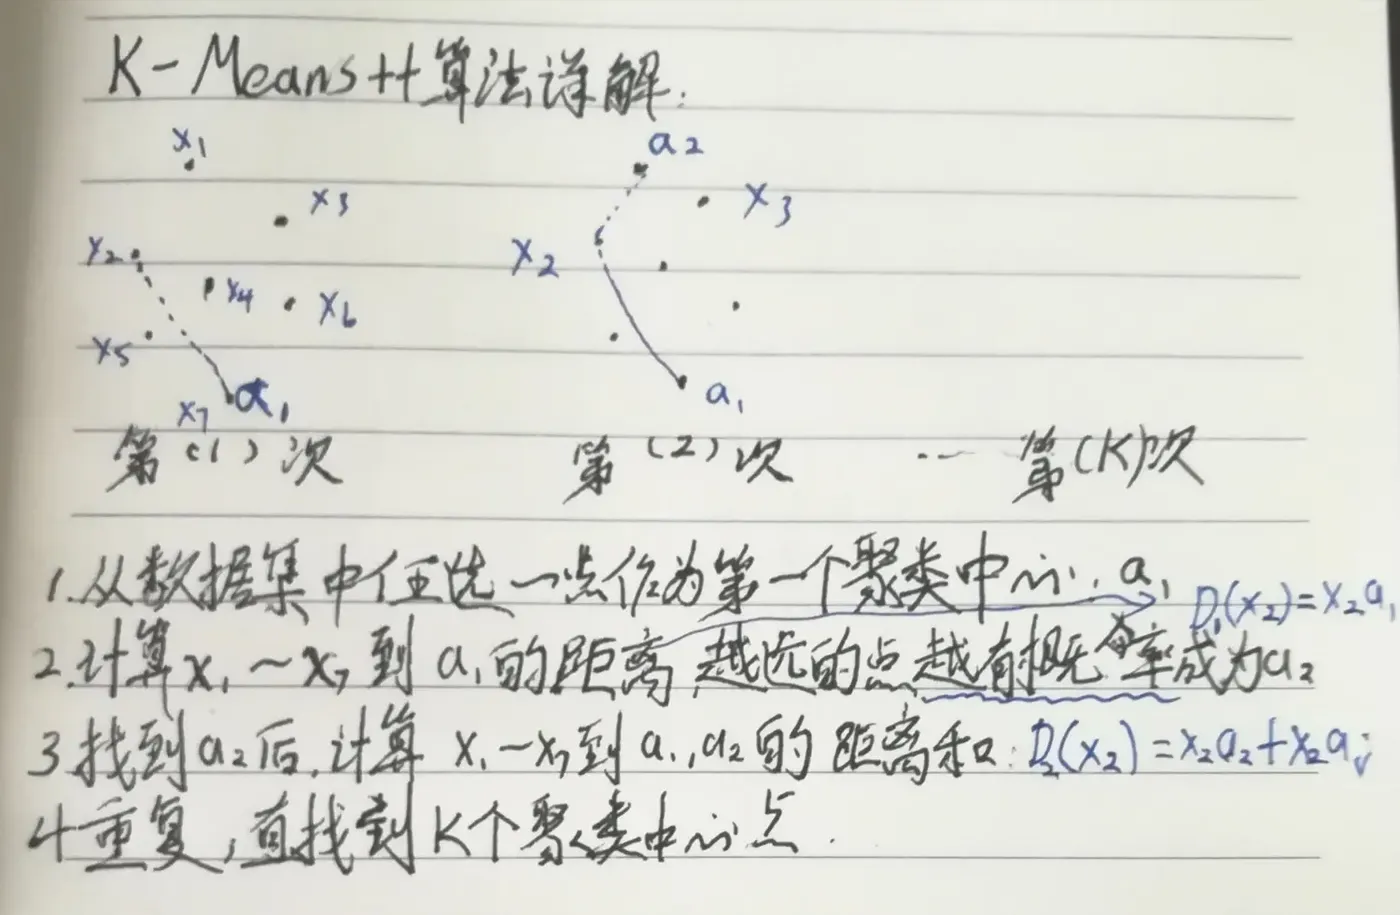 K-Means++算法详解:
x1
a2
x3
x3
x2
x2
x4
x6
x5
x7 a1
a1
第(1)次 第(2)次 ... 第(K)次
1.从数据集中任选一点作为第一个聚类中心.a1 D1(x2)=x2a1
2.计算x1~x7到a1的距离 越远的点越有概率成为a2
3.找到a2后.计算x1~x7到a1,a2的距离和:D2(x2)=x2a2+x2a1;
4重复,直找到K个聚类中心点.